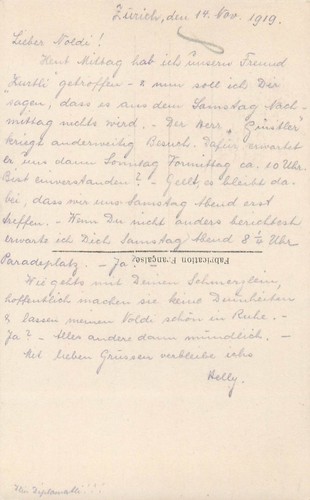 Zürich, den 14. Nov. 1919.
Lieber Noldi!
Heut Mittag hab ich unsern Freund
getroffen - & nun soll ich Dir
sagen, dass es aus dem Samstag Nach-
mittag nichts wird. - Der Herr „Günstler"
kriegt anderweitig Besuch. Dafür erwartet
er uns dann Sonntag Vormittag ca. 10 Uhr.
Bist einverstanden? - Gellt, es bleibt da-
bei, dass wir uns Samstag Abend erst
treffen. - Wenn Du nicht anders berichtest
erwarte ich Dich Samstag Abend 8 ¼ Uhr
Paradeplatz. - Ja!
Fabrication Française
Wie gehts mit Deinen Schmerzlein,
hoffentlich machen sie keine Dummheiten
& lassen meinen Noldi schön in Ruhe. -
Ja? - Alles andere dann mündlich. -
Mit lieben Grüssen verbleibe ichs
Helly.
Diplomatli!!!